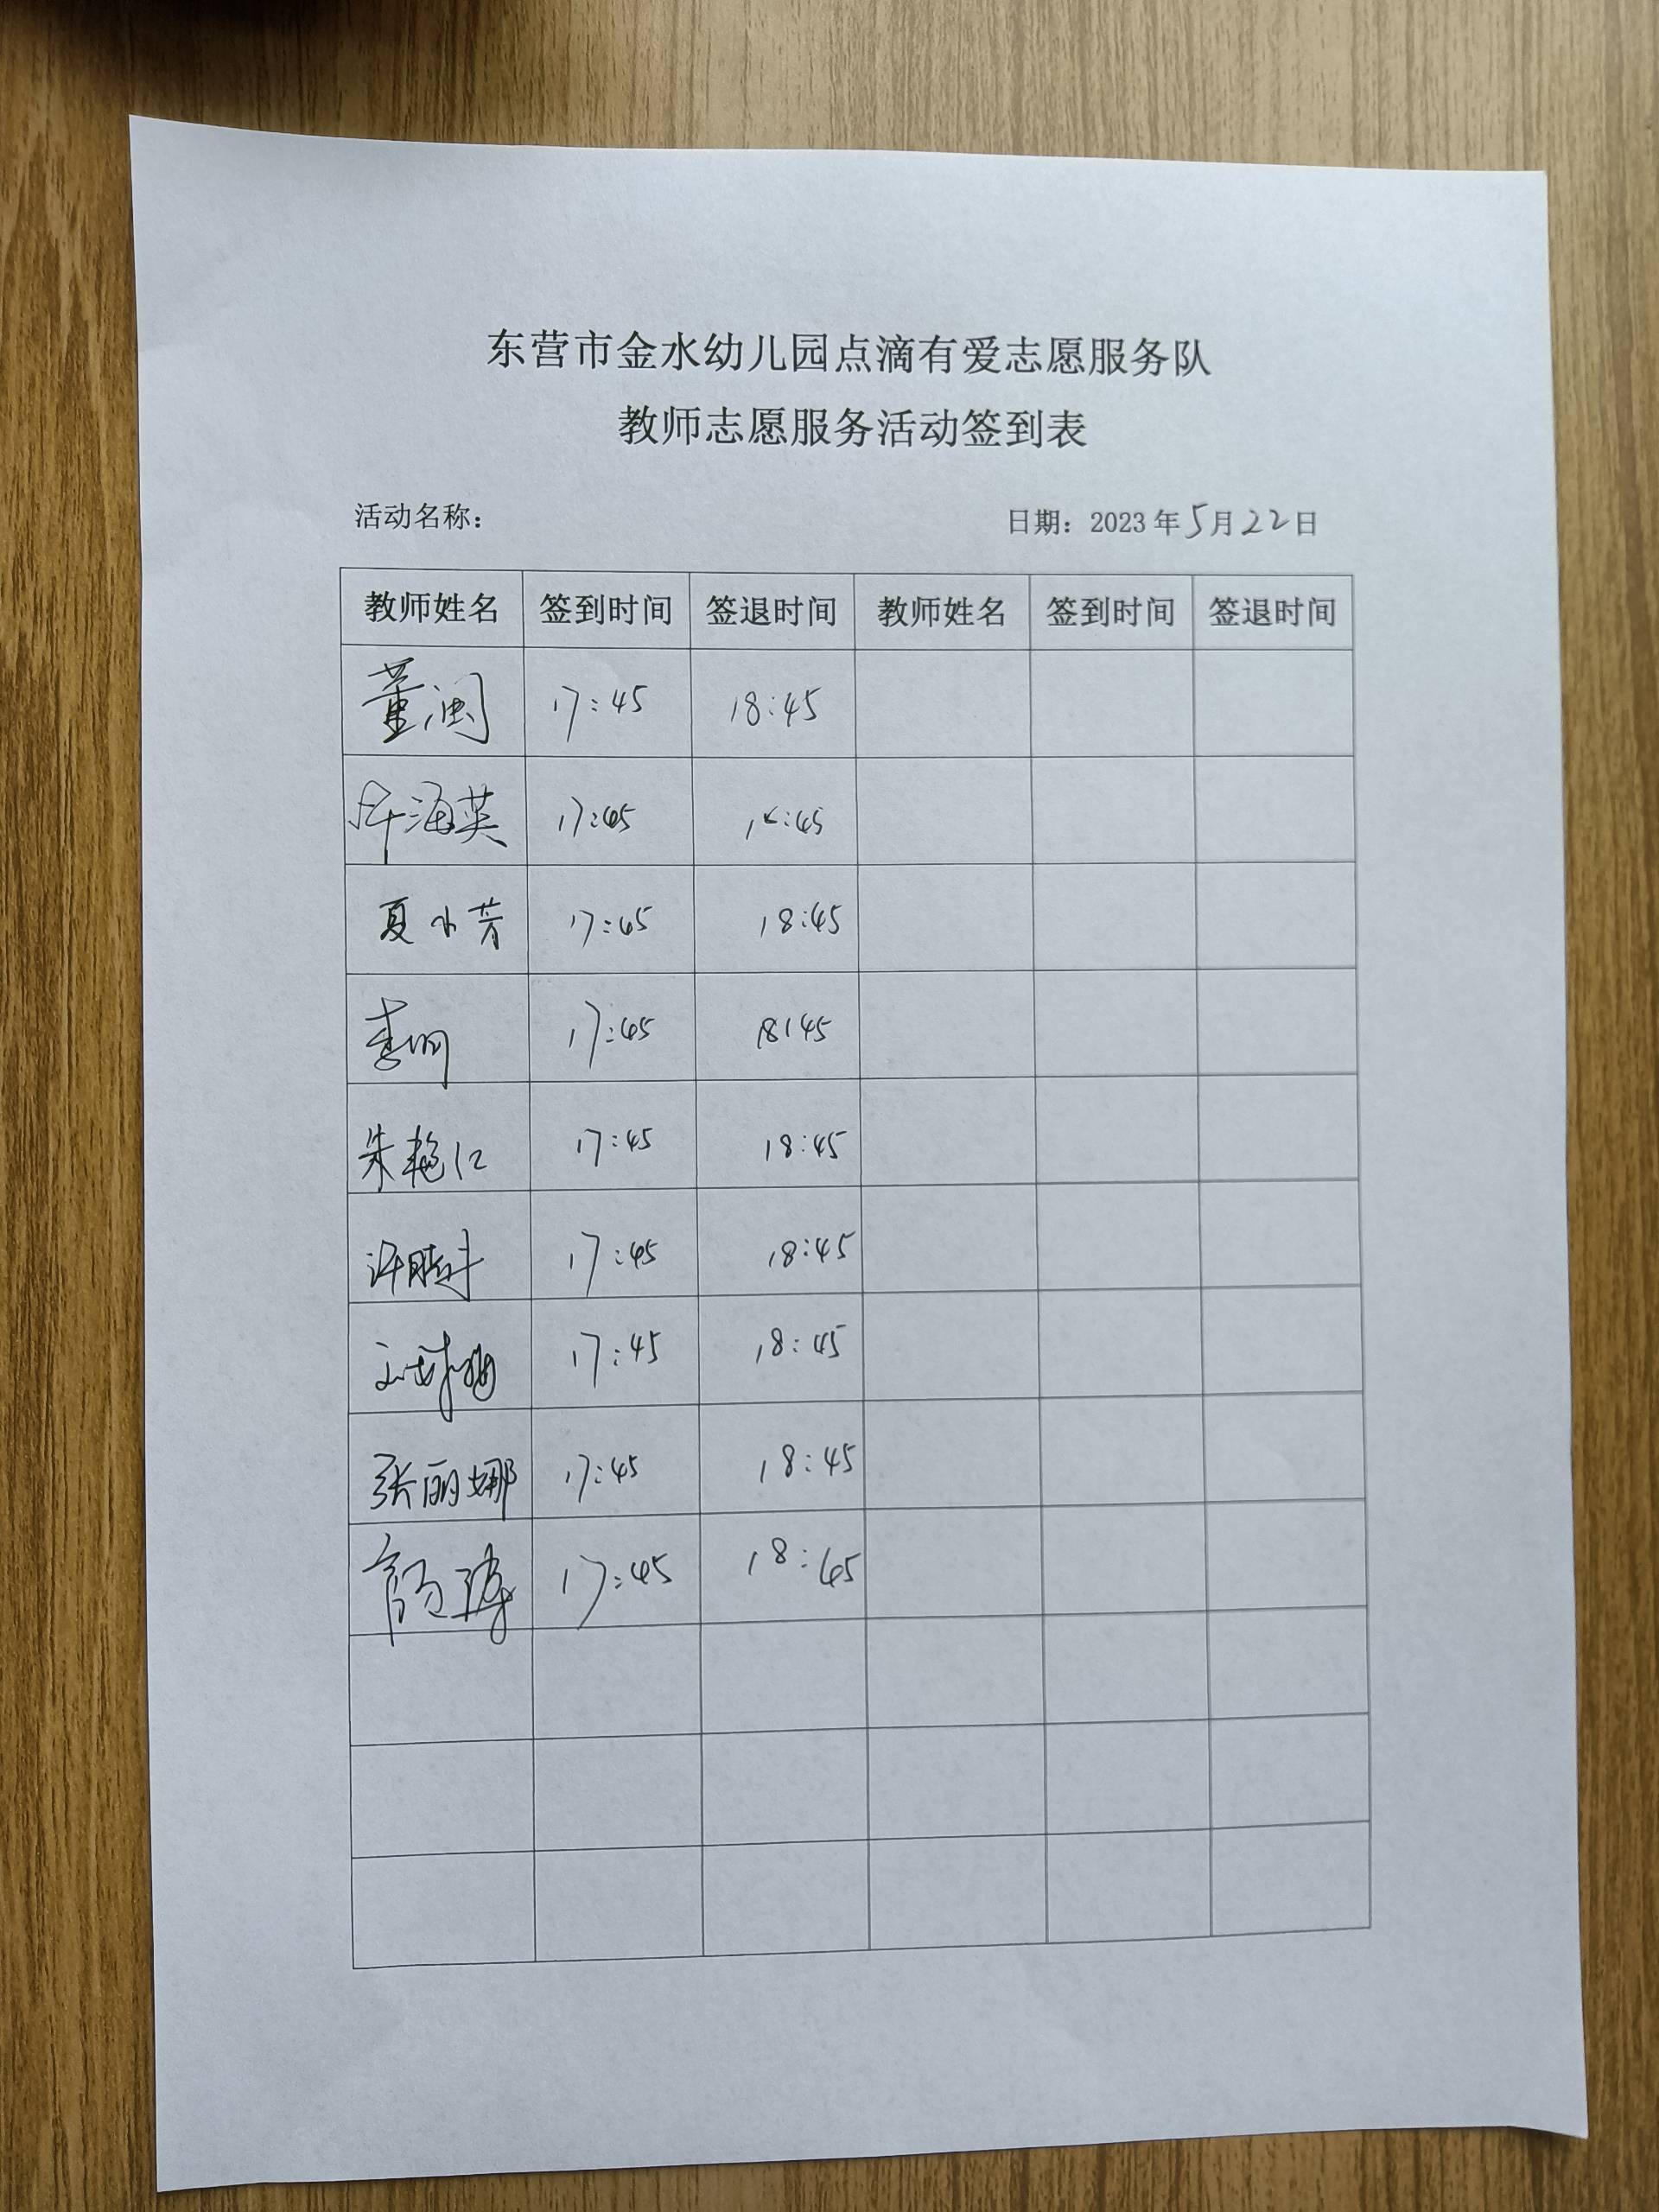 东营市金水幼儿园点滴有爱志愿服务队
教师志愿服务活动签到表
活动名称: 日期: 2023年5月22日
教师姓名 签到时间 签退时间 教师姓名 签到时间 签退时间
董闽 17:45 18:45
海英 17:45 18:45
夏小芳 17:45 18:45
李明 17:45 18:45
朱艳红 17:45 18:45
17:45 18:45
17:45 18:45
张丽娜 17:45 18:45
17:45 18:45